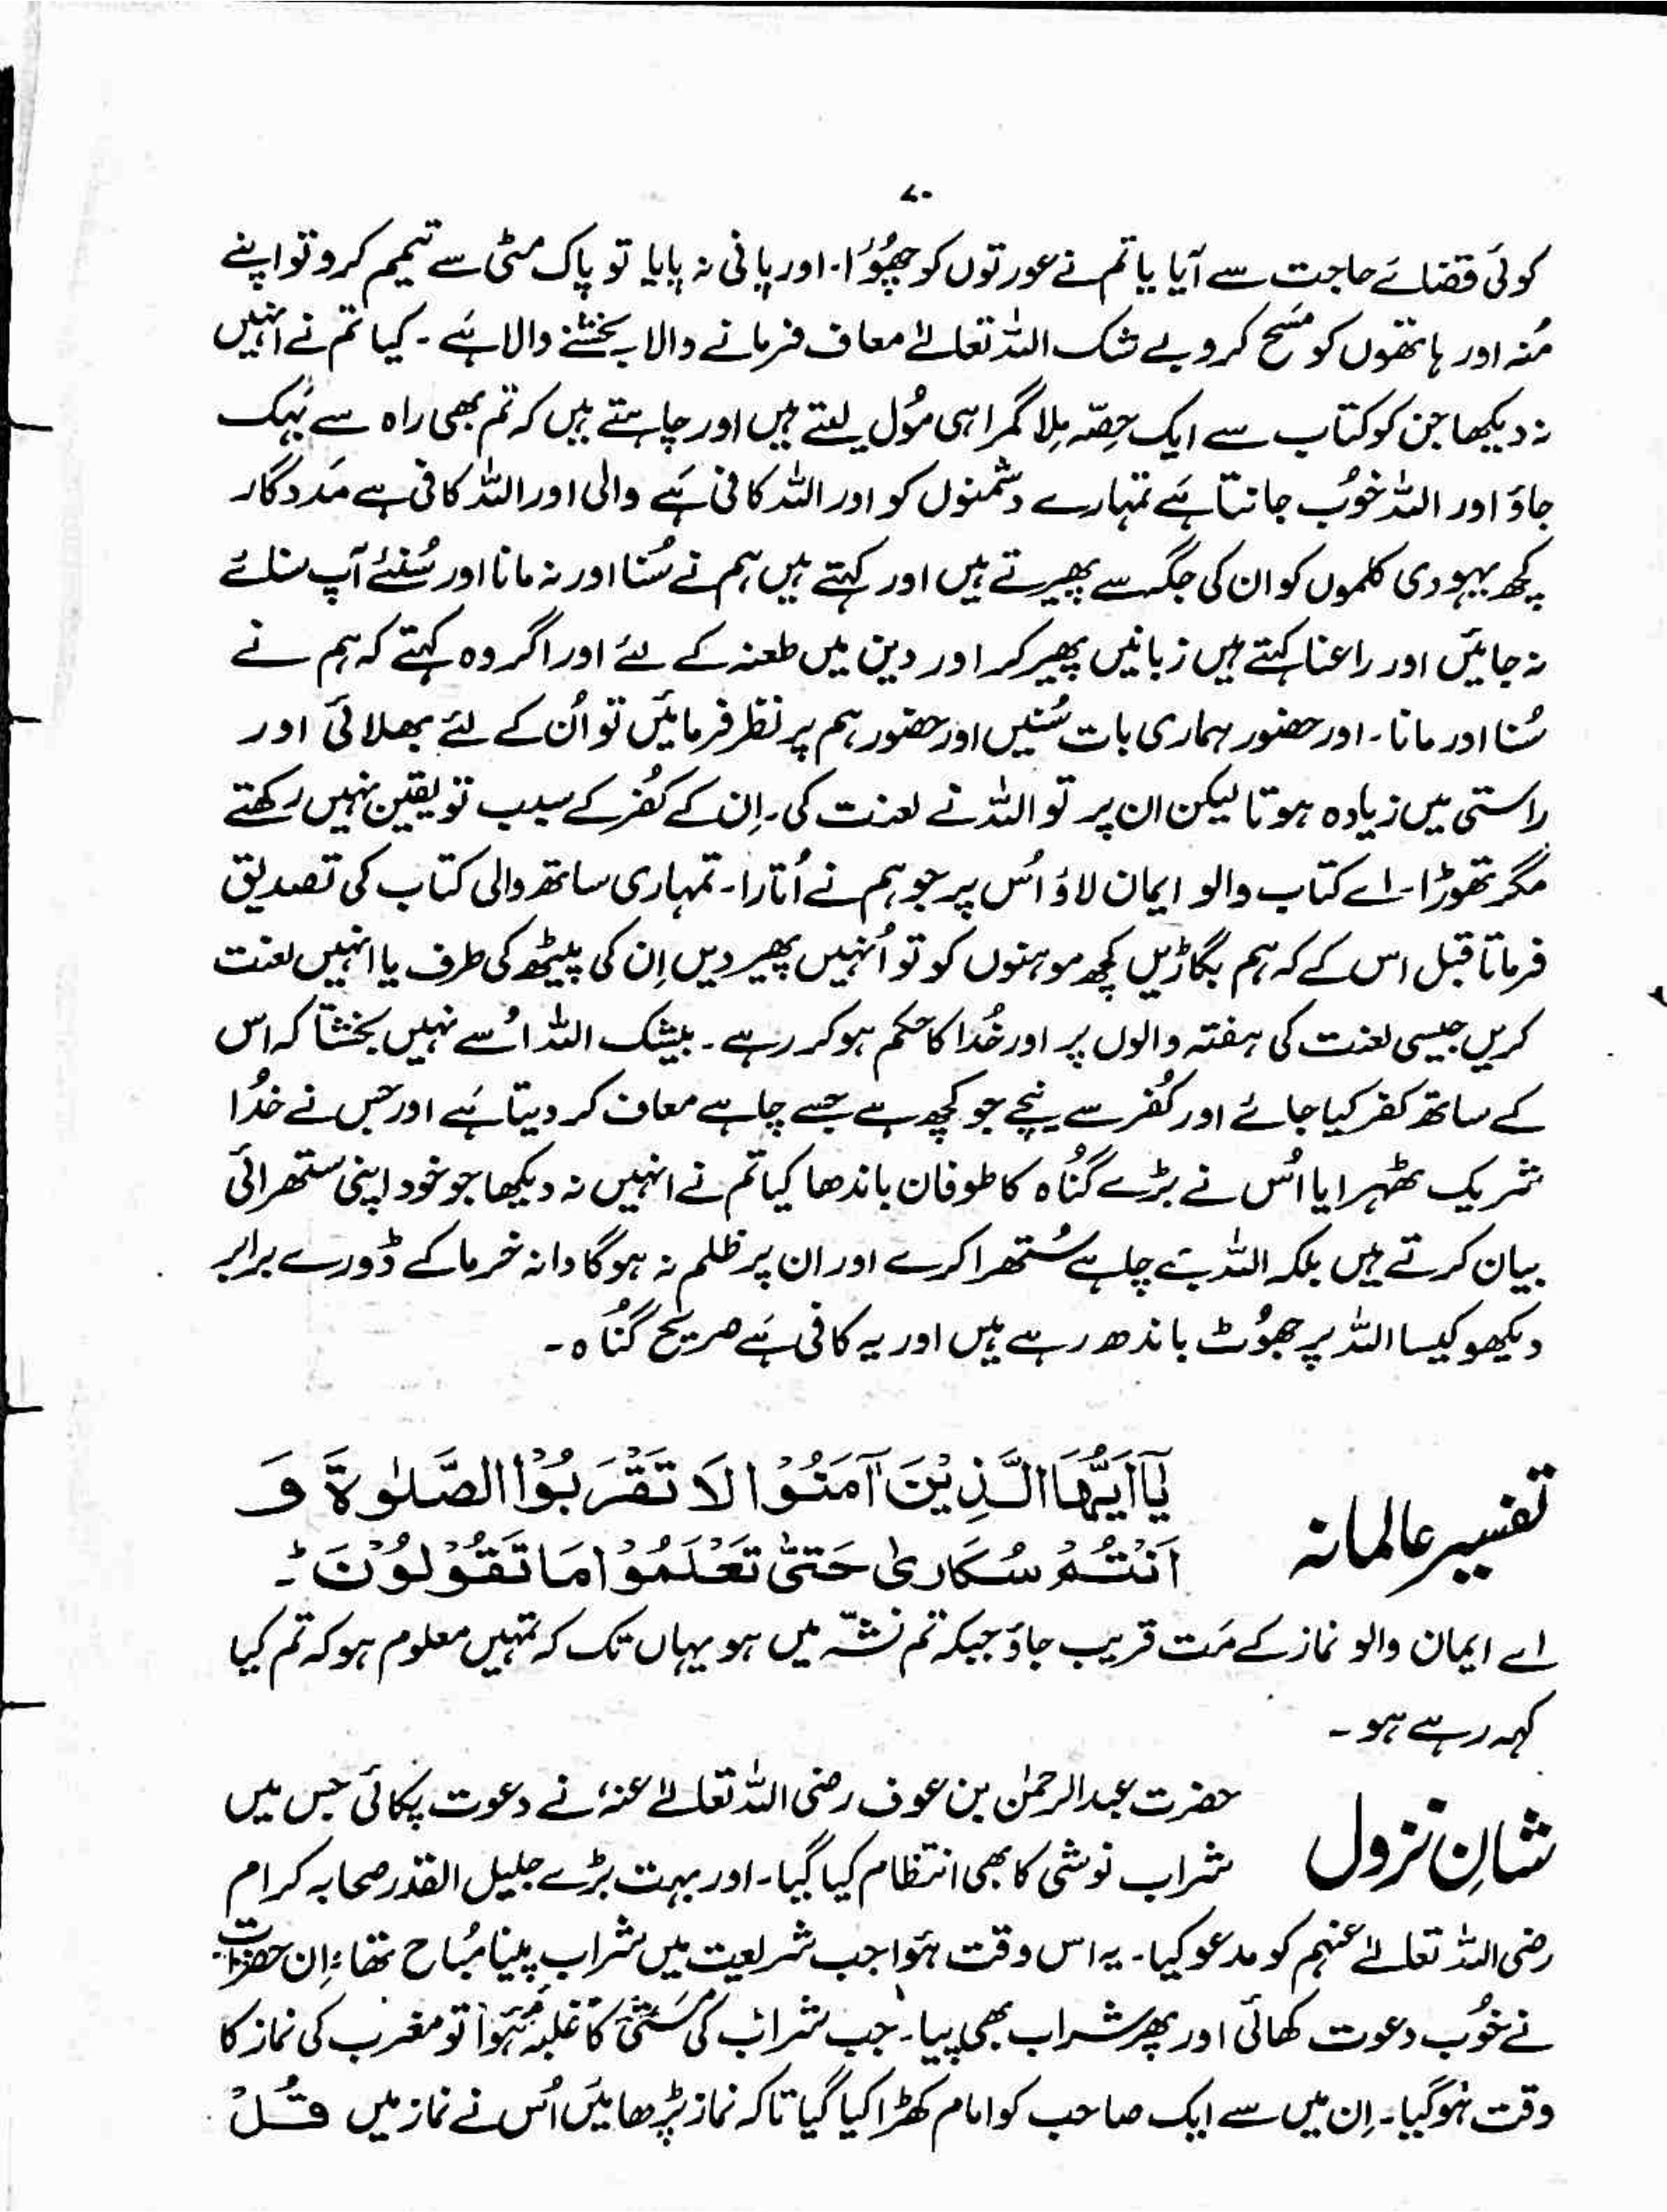 ۷۰
کوئی قضائے حاجت سے آیا یا تم نے عورتوں کو چھُؤا۔ اور پانی نہ پایا تو پاک مٹی سے تیمم کرو تو اپنے
مُنہ اور ہاتھوں کو مَسح کرو بے شک اللہ تعالےٰ معاف فرمانے والا بخشنے والا ہَے ۔ کیا تم نے اُنہیں
نہ دیکھا جن کو کتاب سے ایک حِصّہ مِلا گمراہی مُول لیتے ہیں اور چاہتے ہیں کہ تم بھی راہ سے بَہک
جاؤ اور اللہ خوُب جانتا ہَے تمہارے دشمنوں کو اور اللہ کافی ہَے والی اور اللہ کافی ہے مَددگار
کچھ یہودی کلموں کو ان کی جگہ سے پھیرتے ہیں اور کہتے ہیں ہم نے سُنا اور نہ مانا اور سُنئے آپ سنائے
نہ جائیں اور راعنا کہتے ہیں زبانیں پھیر کر اور دین میں طعنہ کے لئے اور اگر وہ کہتے کہ ہم نے
سُنا اور مانا ۔ اور حضور ہماری بات سُنیں اور حضور ہم پر نظر فرمائیں تو اُن کے لئے بھلائی اور
راستی میں زیادہ ہوتا لیکن ان پر تو اللہ نے لعنت کی ۔ اِن کے کُفر کے سبب تو یقین نہیں رکھتے
مگر تھوڑا ۔ اے کتاب والو ایمان لاؤ اُس پر جو ہم نے اُتارا ۔ تمہاری ساتھ والی کتاب کی تصدیق
فرماتا قبل اس کے کہ ہم بگاڑیں کچھ موہنوں کو تو اُنہیں پھیر دیں اِن کی پیٹھ کی طرف یا انہیں لعنت
کریں جیسی لعنت کی ہفتہ والوں پر اور خُدا کا حکم ہو کر رہے ۔ بیشک اللہ اُسے نہیں بخشتا کہ اس
کے ساتھ کفر کیا جائے اور کُفر سے نیچے جو کچھ ہے جسے چاہے معاف کر دیتا ہَے اور جس نے خدُا
شریک ٹھہرایا اُس نے بڑے گُناہ کا طوفان باندھا کیا تم نے انہیں نہ دیکھا جو خود اپنی ستھرائی
بیان کرتے ہیں بلکہ اللہ جسے چاہے سُتھرا کرے اور ان پر ظلم نہ ہوگا دانہ خرما کے ڈورے برابر
دیکھو کیسا اللہ پر جھوُٹ باندھ رہے ہیں اور یہ کافی ہَے صریح گُناہ ۔
تفسیر عالمانہ
یٰۤاَیُّهَا الَّذِیْنَ اٰمَنُوْا لَا تَقْرَبُوا الصَّلٰوةَ وَ
اَنْتُمْ سُكَارٰی حَتّٰی تَعْلَمُوْا مَا تَقُوْلُوْنَ ؕ۔
اے ایمان والو نماز کے مَت قریب جاؤ جبکہ تم نشّہ میں ہو یہاں تک کہ تمہیں معلوم ہو کہ تم کیا
کہہ رہے ہو ۔
شانِ نزول
حضرت عبدالرحمٰن بن عوف رضی اللہ تعالےٰ عنہٗ نے دعوت پکائی جس میں
شراب نوشی کا بھی انتظام کیا گیا ۔ اور بہت بڑے جلیل القدر صحابہ کرام
رضی اللہ تعالےٰ عنہم کو مدعو کیا ۔ یہ اس وقت ہؤا جب شریعت میں شراب پینا مُباح تھا ؛ اِن حضرات
نے خوُب دعوت کھائی اور پھر شراب بھی پیا ۔ جب شراب کی مَستی کا غلبہ ہُوا تو مغرب کی نماز کا
وقت ہُوگیا ۔ اِن میں سے ایک صاحب کو امام کھڑا کیا گیا تاکہ نماز پڑھائیں اُس نے نماز میں قُلْ